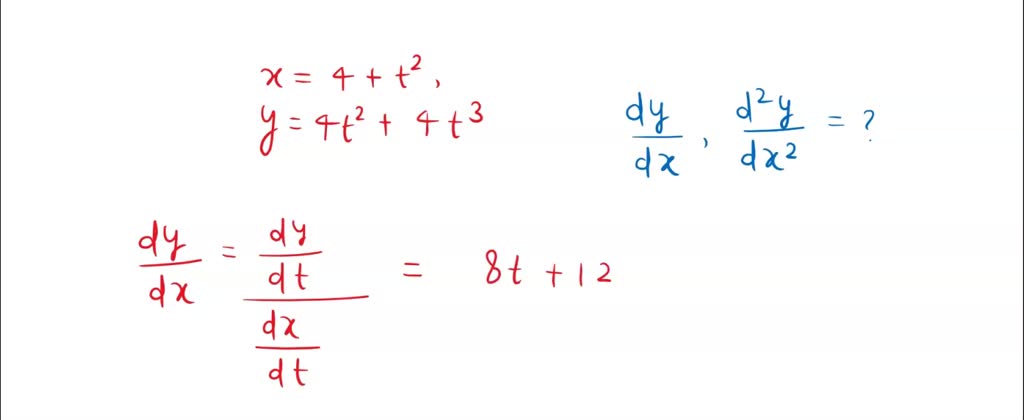 x = 4 + t²,
y = 4t² + 4t³
dy/dx , d²y/dx² = ?
dy/dx = (dy/dt)/(dx/dt) = 8t + 12